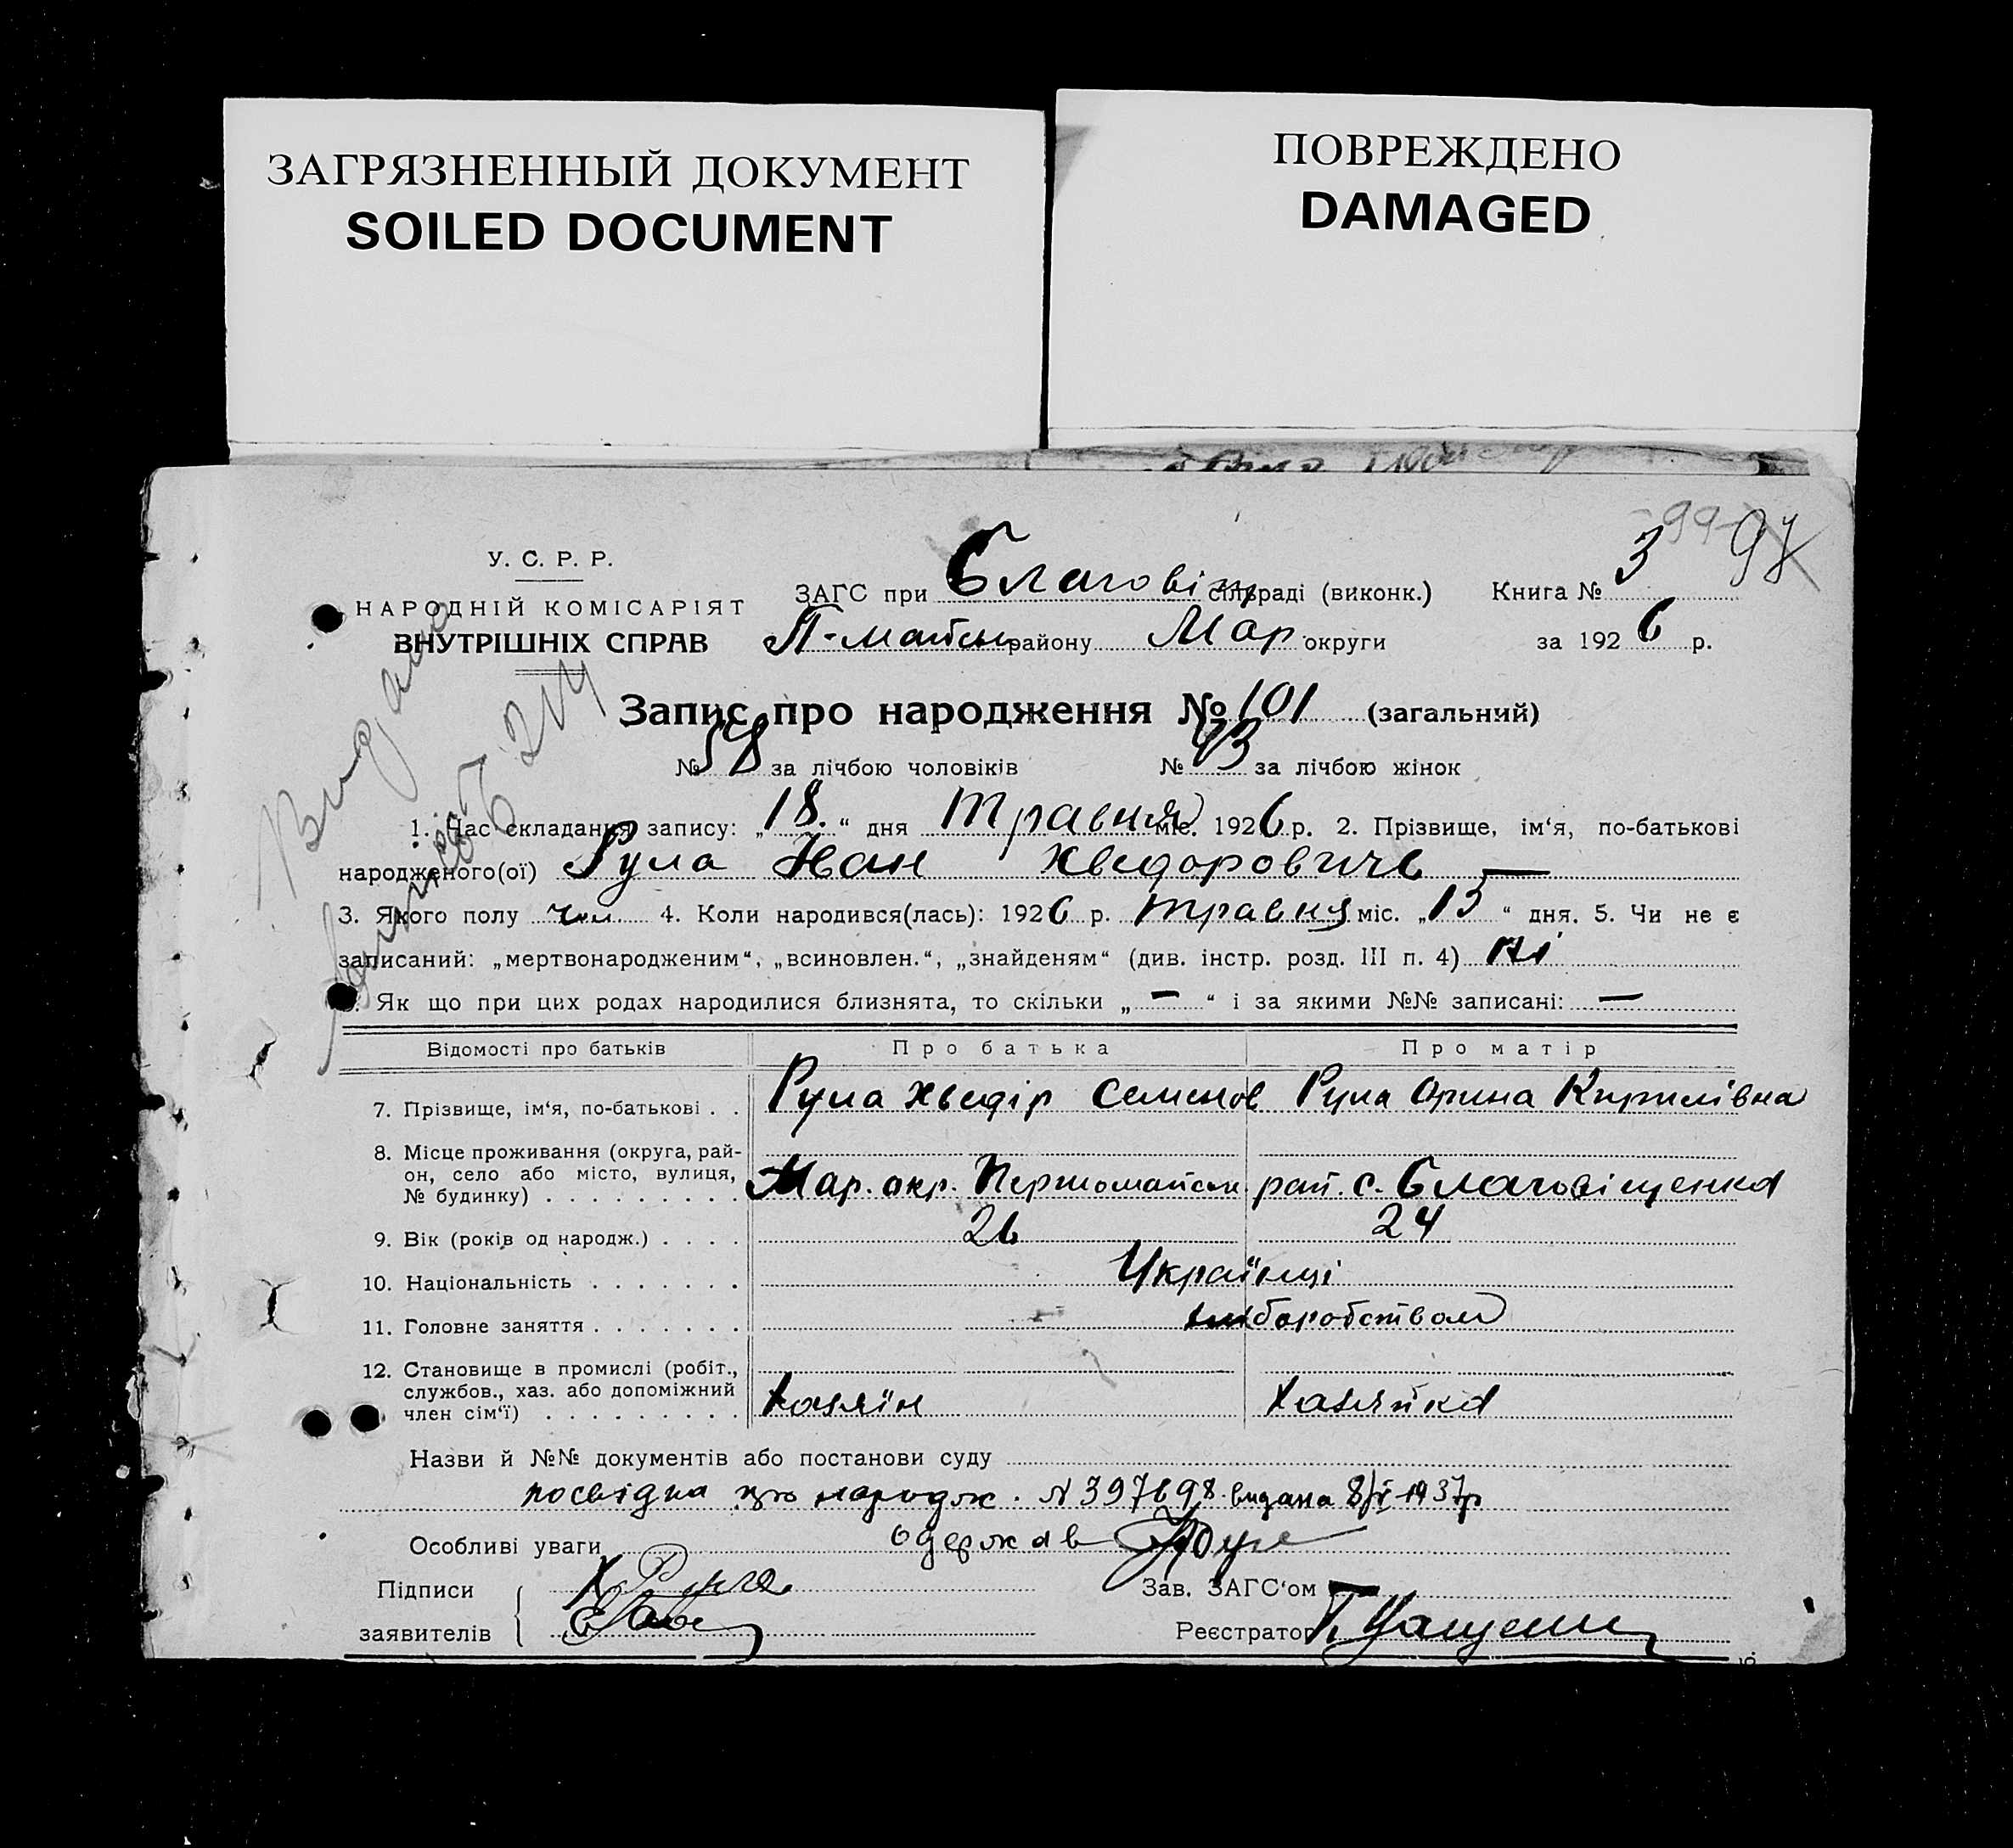 ЗАГРЯЗНЕННЫЙ ДОКУМЕНТ
SOILED DOCUMENT
ПОВРЕЖДЕНО
DAMAGED
У. С. Р. Р.
НАРОДНІЙ КОМІСАРІЯТ
ВНУТРІШНІХ СПРАВ
99 97
ЗАГС при Благовіщ сільраді (виконк.) Книга № 3
П-майськ району Мар. округи за 1926 р.
Запис про народження № 101 (загальний)
№ 58 за лічбою чоловіків № 43 за лічбою жінок
1. Час складання запису: „18.“ дня Травня міс. 1926 р. 2. Прізвище, ім‘я, по-батькові
народженого(ої) Рула Іван Хведорович —
3. Якого полу чол 4. Коли народився(лась): 1926 р. травня міс. „15“ дня. 5. Чи не є
записаний: „мертвонародженим“, „всиновлен.“, „знайденям“ (див. інстр. розд. III п. 4) ні
Як що при цих родах народилися близнята, то скільки „—“ і за якими №№ записані: —
Видана
Відомості про батьків Про батька Про матір
7. Прізвище, ім‘я, по-батькові . . Рула Хведір Семенов Рула Орина Кирилівна
8. Місце проживання (округа, рай-
он, село або місто, вулиця,
№ будинку) . . . . . . . . . Мар. окр. Першомайськ рай. с. Благовіщенка
9. Вік (років од народж.) . . . . 26 24
10. Національність . . . . . . . Українці
11. Головне заняття . . . . . . . хліборобством
12. Становище в промислі (робіт.,
службов., хаз. або допоміжний
член сім‘ї) . . . . . . . . . Хазяїн Хазяйка
Назви й №№ документів або постанови суду
посвідка про народж. N 397698 видана 8/V-1937р
Особливі уваги одержав
Підписи Х Рула Зав. ЗАГС‘ом
заявителів Реєстратор